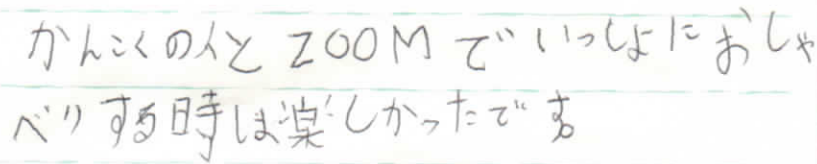 かんこくの人と ZOOM でいっしょにおしゃ
べりする時は楽しかったです。